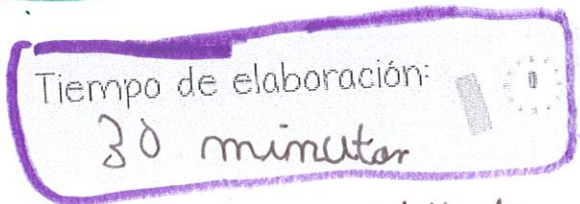 Tiempo de elaboración:
30 minutos